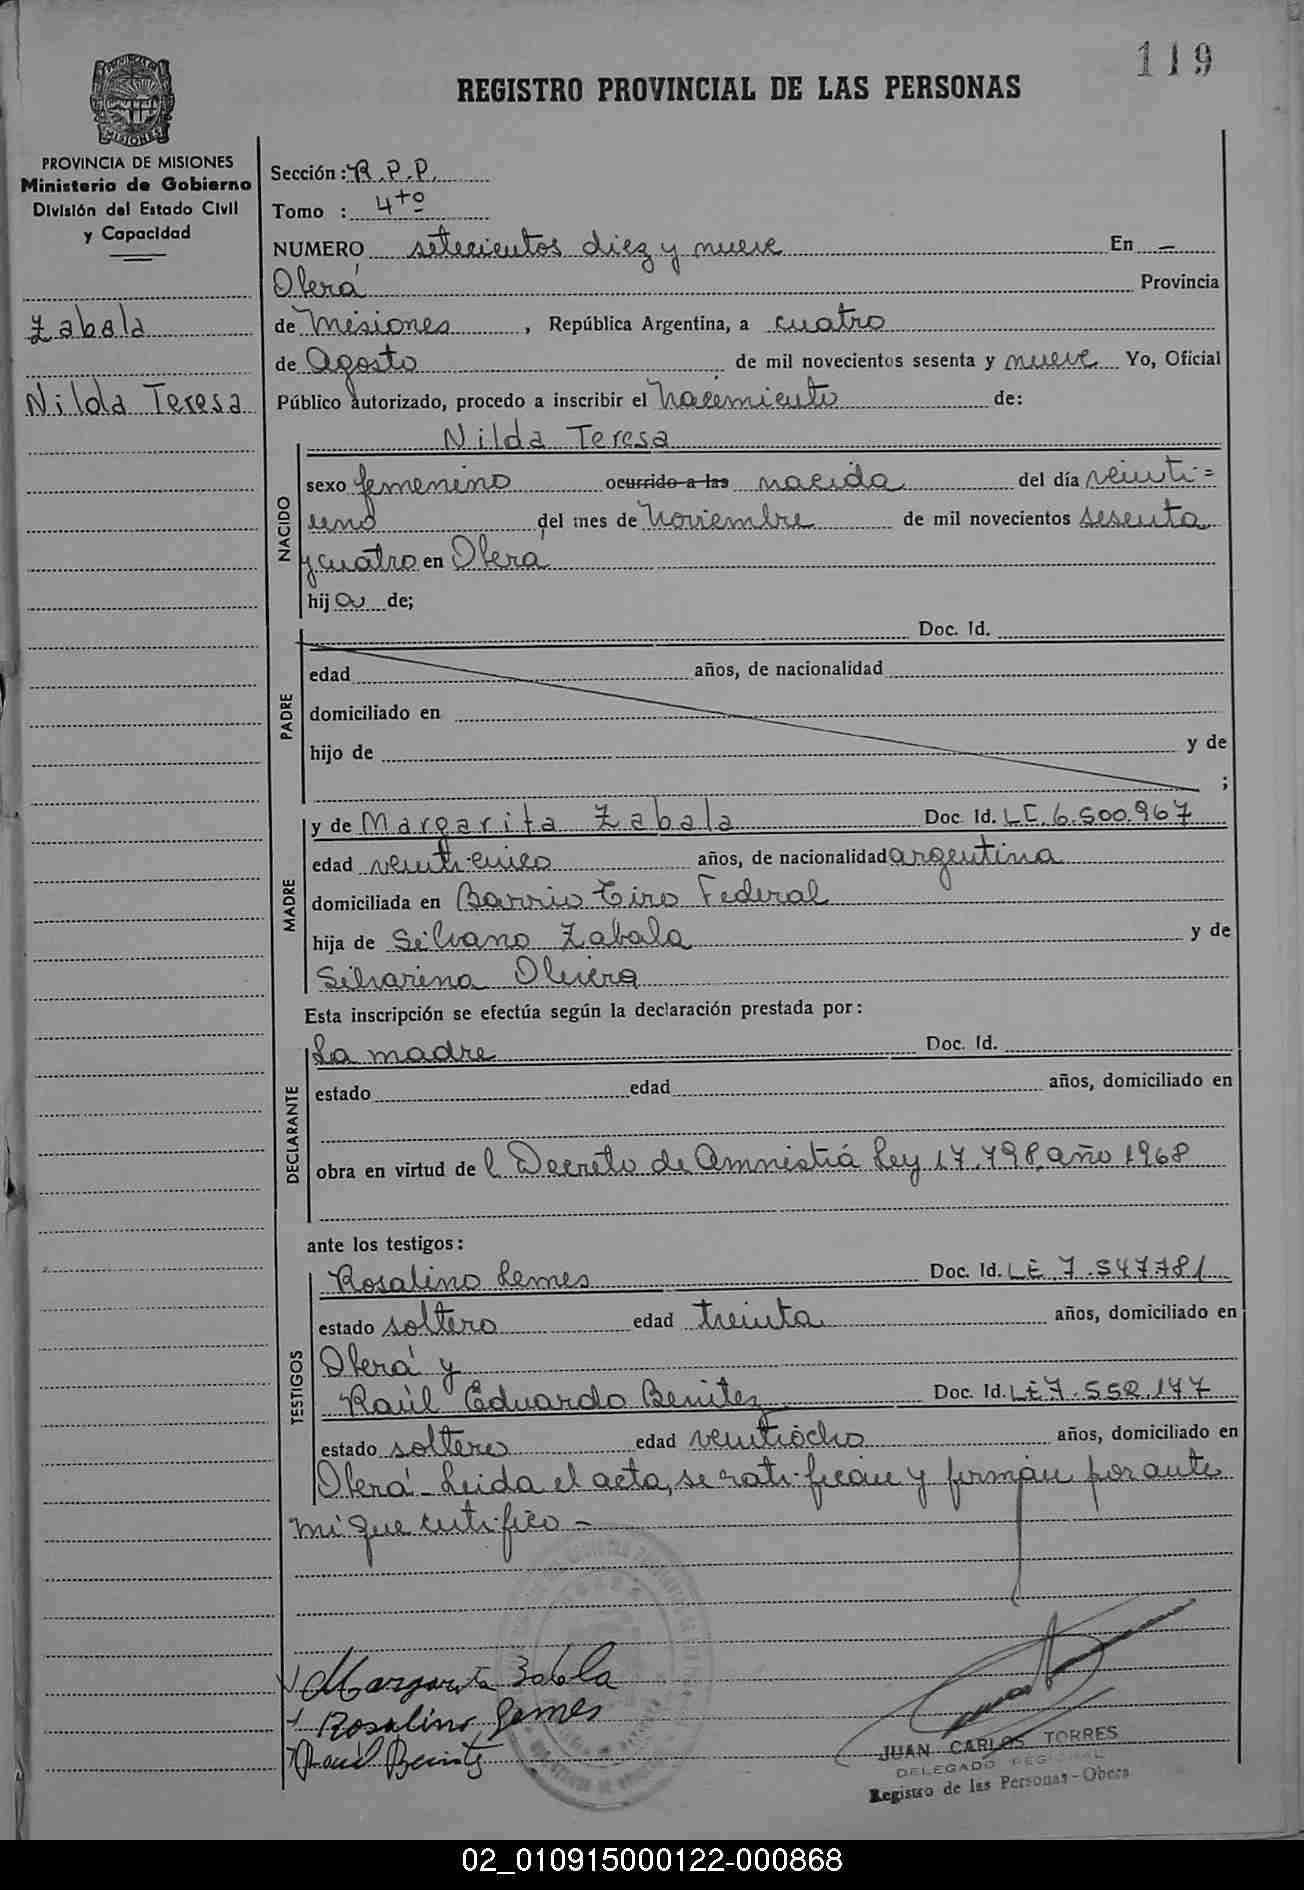 119
REGISTRO PROVINCIAL DE LAS PERSONAS
PROVINCIA DE MISIONES
Ministerio de Gobierno
División del Estado Civil
y Capacidad
Zabala
Nilda Teresa
Sección: R.P.P.
Tomo : 4to
NUMERO setecientos diez y nueve En -
Oberá Provincia
de Misiones, República Argentina, a cuatro
de Agosto de mil novecientos sesenta y nueve Yo, Oficial
Público autorizado, procedo a inscribir el nacimiento de:
NACIDO
Nilda Teresa
sexo femenino ocurrido a las nacida del día veinti=
uno del mes de Noviembre de mil novecientos sesenta
y cuatro en Oberá
hija de;
PADRE
Doc. Id.
edad años, de nacionalidad
domiciliado en
hijo de y de
;
MADRE
y de Margarita Zabala Doc. Id. LC. 6.500.967
edad veinticinco años, de nacionalidad argentina
domiciliada en Barrio Tiro Federal
hija de Silvano Zabala y de
Silvarina Olivera
Esta inscripción se efectúa según la declaración prestada por:
DECLARANTE
La madre Doc. Id.
estado edad años, domiciliado en
obra en virtud de l Decreto de Amnistiá Ley 17.798 año 1968
ante los testigos:
TESTIGOS
Rosalino Lemes Doc. Id. LE 7.547781
estado soltero edad treinta años, domiciliado en
Oberá y
Raúl Eduardo Benitez Doc. Id. LE 7.552.147
estado soltero edad veintiocho años, domiciliado en
Oberá - Leida el acta, se ratifican y firman por ante
mi que certifico -
Margarita Zabala
Rosalino Lemes
Raúl Benitez
JUAN CARLOS TORRES
DELEGADO REGIONAL
Registro de las Personas - Obera
02_010915000122-000868